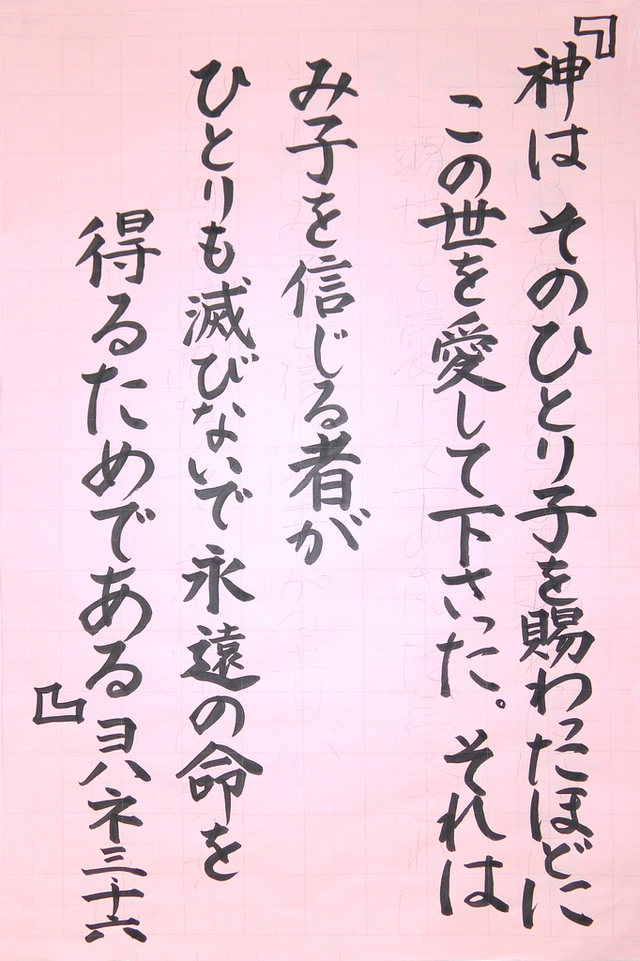 『神は そのひとり子を賜わったほどに
この世を愛して下さった。それは
み子を信じる者が
ひとりも滅びないで永遠の命を
得るためである』ヨハネ三十六